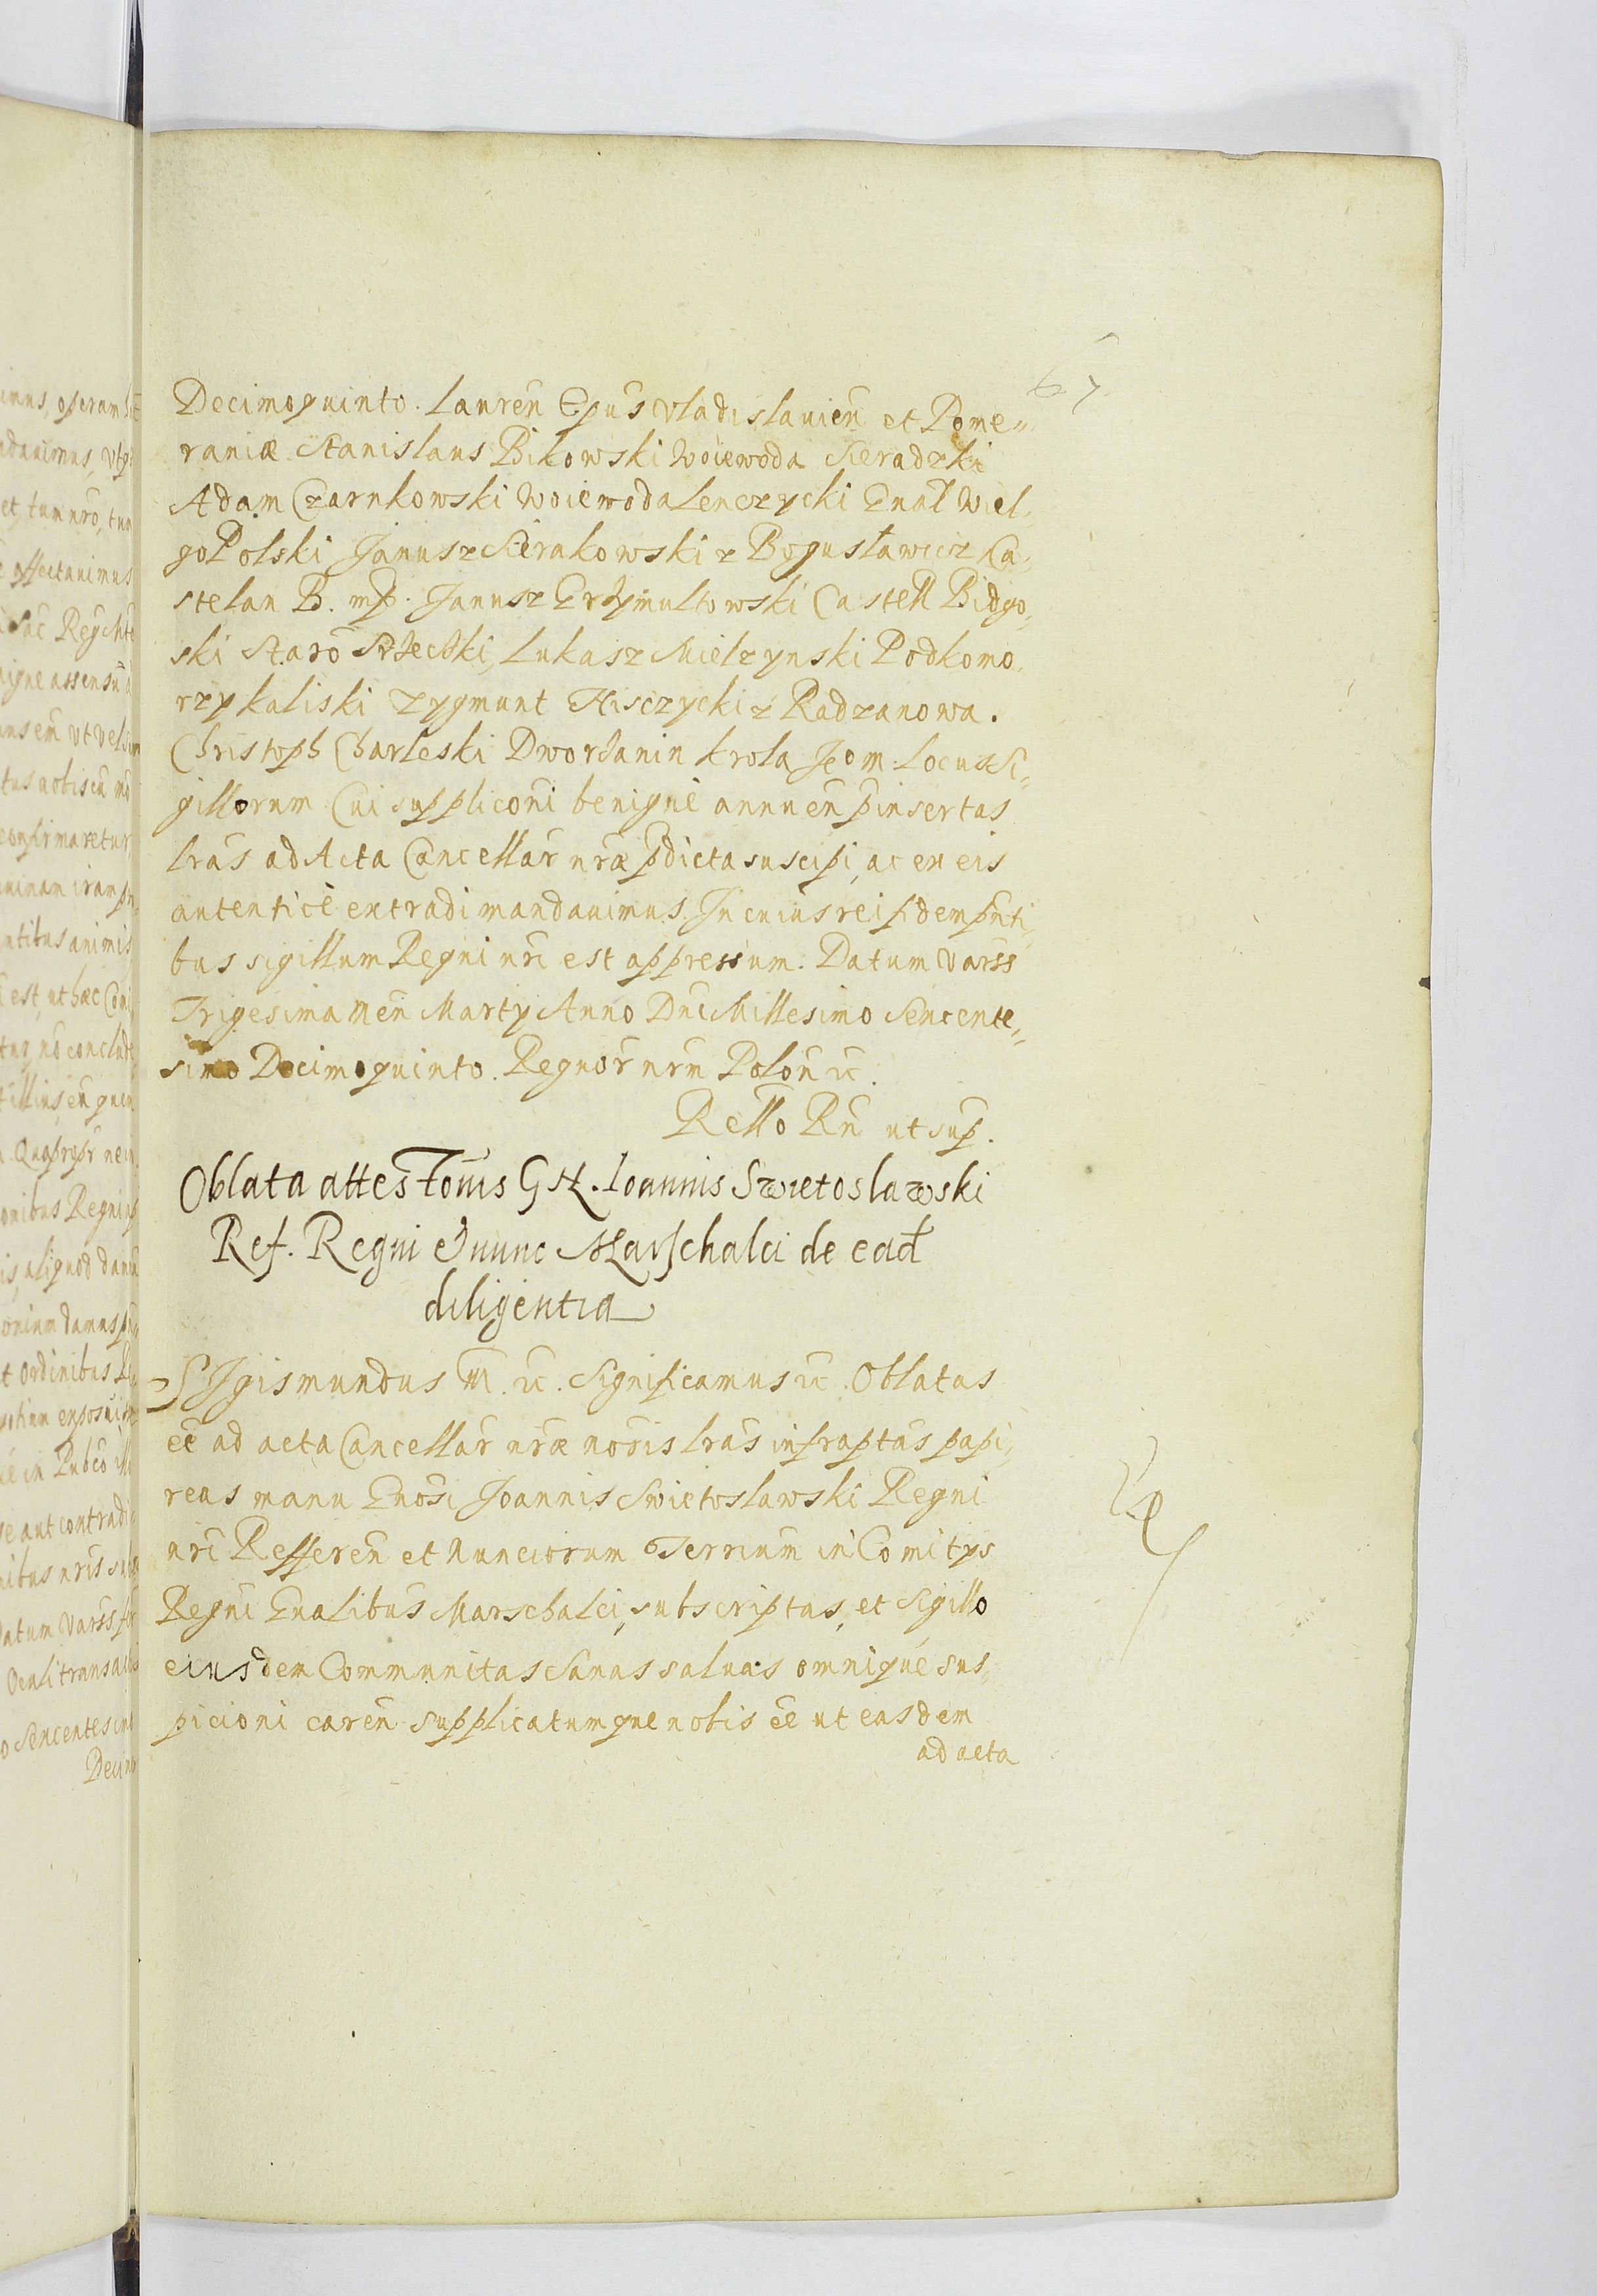 67
Decimoquinto. Laureñ Epũs Vladislavieñ et Pome„
raniæ Stanislaus Bikowski Woiewoda Sieradzki
Adam Czarnkowski Woiewoda Lenczycki Gnãl Wiel„
goPolski Janusz Sierakowski z Bogusławicz Ca„
stelan B. mp. Janusz Grzymultowski Castell Bidgo„
ski Staro Srzedzki, Lukasz Mielzynski Podkomo„
rzy kaliski Zygmunt Hisczycki z Radzanowa.
Christoph Charleski Dworzanin krola Jeom. Locus Si„
gillorum Cui suppliconi benignè annueñ pinsertas
lrãs ad Acta Cancellar nræ pdicta suscipi, ac ex eis
autenticè extradi mandauimus. In cuius rei fidem pñti„
bus sigillum Regni nrĩ est appressum. Datum Varss
Trigesima Meñ Marty Anno Dnĩ Millesimo Sexcente„
simo Decimoquinto. Regnor nrm Poloñ &c.
Rello Rñ ut sup.
Oblata attestonis G M. Ioannis Swietoslawski
Ref. Regni & nunc Marschalci de ead
diligentia
SIgismundus III. &c. Significamus &c. Oblatas
eẽ ad acta Cancellar nræ noris lrãs infraptãs papi„
reas manu Gnosi Joannis Swietoslawski Regni
nrĩ Reffereñ et Nunciorum Terrium in Comitys
Regni Gnalibus Marschalci, subscriptas, et Sigillo
eiusdem Communitas sanas saluas omnique sus„
picioni careñ supplicatumque nobis eẽ ut easdem
ad acta